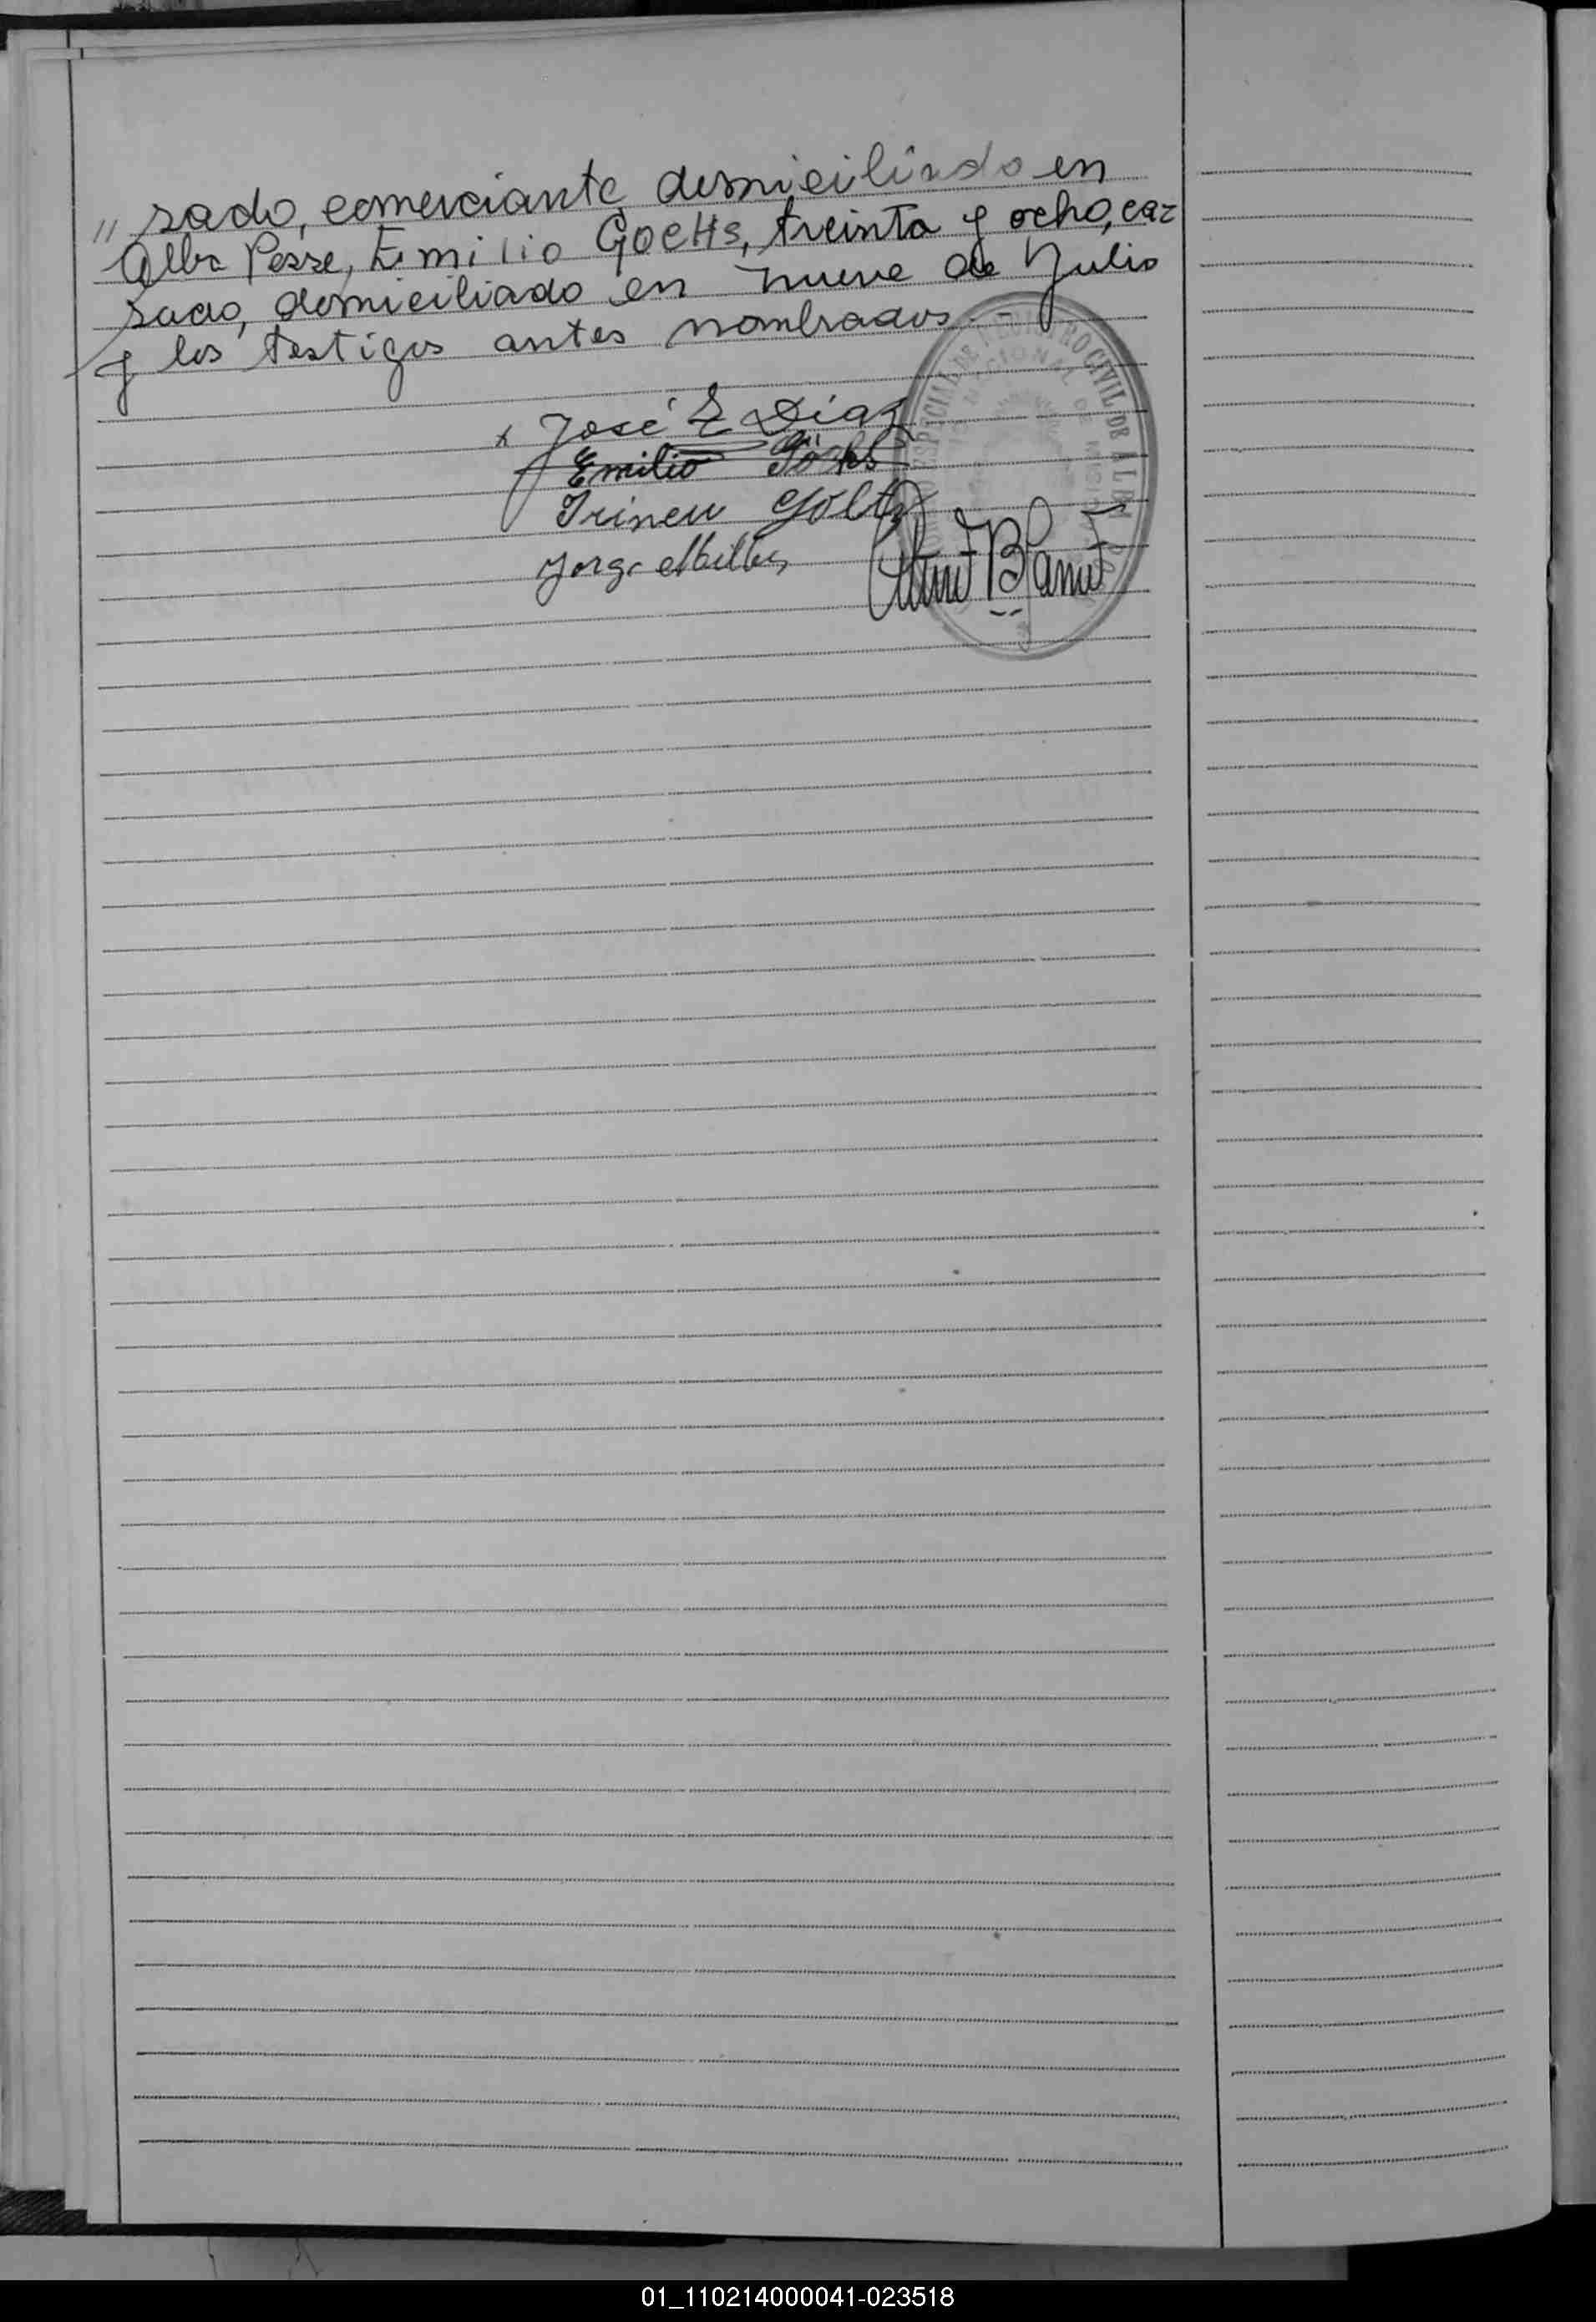 " sado, comerciante, domiciliado en
Alba Posse, Emilio Goetts, treinta y ocho, ca=
sado, domiciliado en nueve de Julio
y los testigos antes nombrados.-
x José E Díaz
Emilio
Irineu Goltz
Jorge
ESPECIAL DE REGISTRO CIVIL DE ALBA
NACIONAL DE MISIONES
01_110214000041-023518